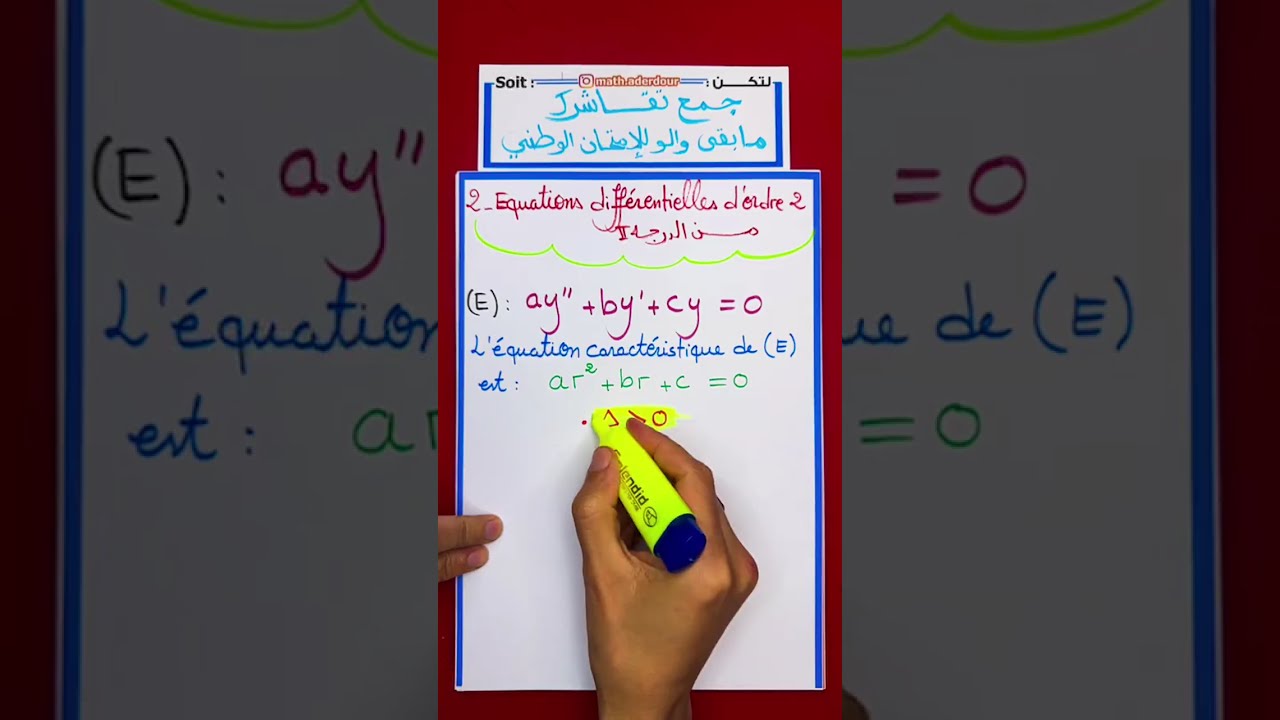 Soit : math.aderdour لتكن :
جمع تقاشرك
مابقى والو للإمتحان الوطني
2_Equations différentielles d'ordre 2
من الدرجة
(E) : ay'' + by' + cy = 0
L'équation caractéristique de (E)
est : ar² + br + c = 0
> 0
Splendid